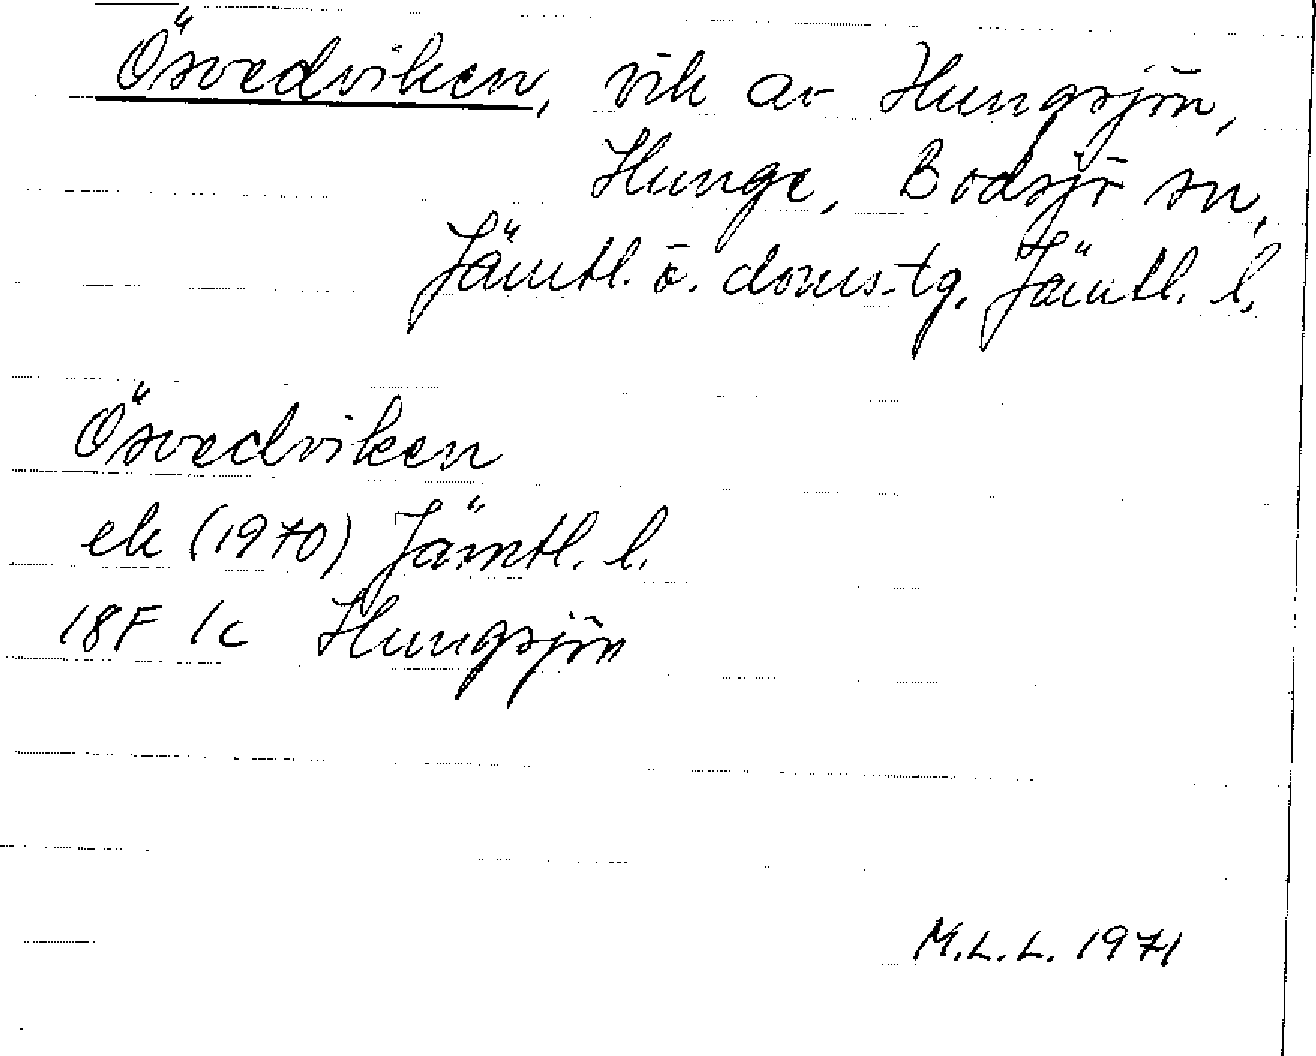 Ösvedviken, vik av Hungsjön,
Hunge, Bodsjö sn,
Jämtl. ö. doms.tg. Jämtl. l.
Ösvedviken
ek (1970) Jämtl. l.
18F 1c Hungsjön
M.L.L. 1971